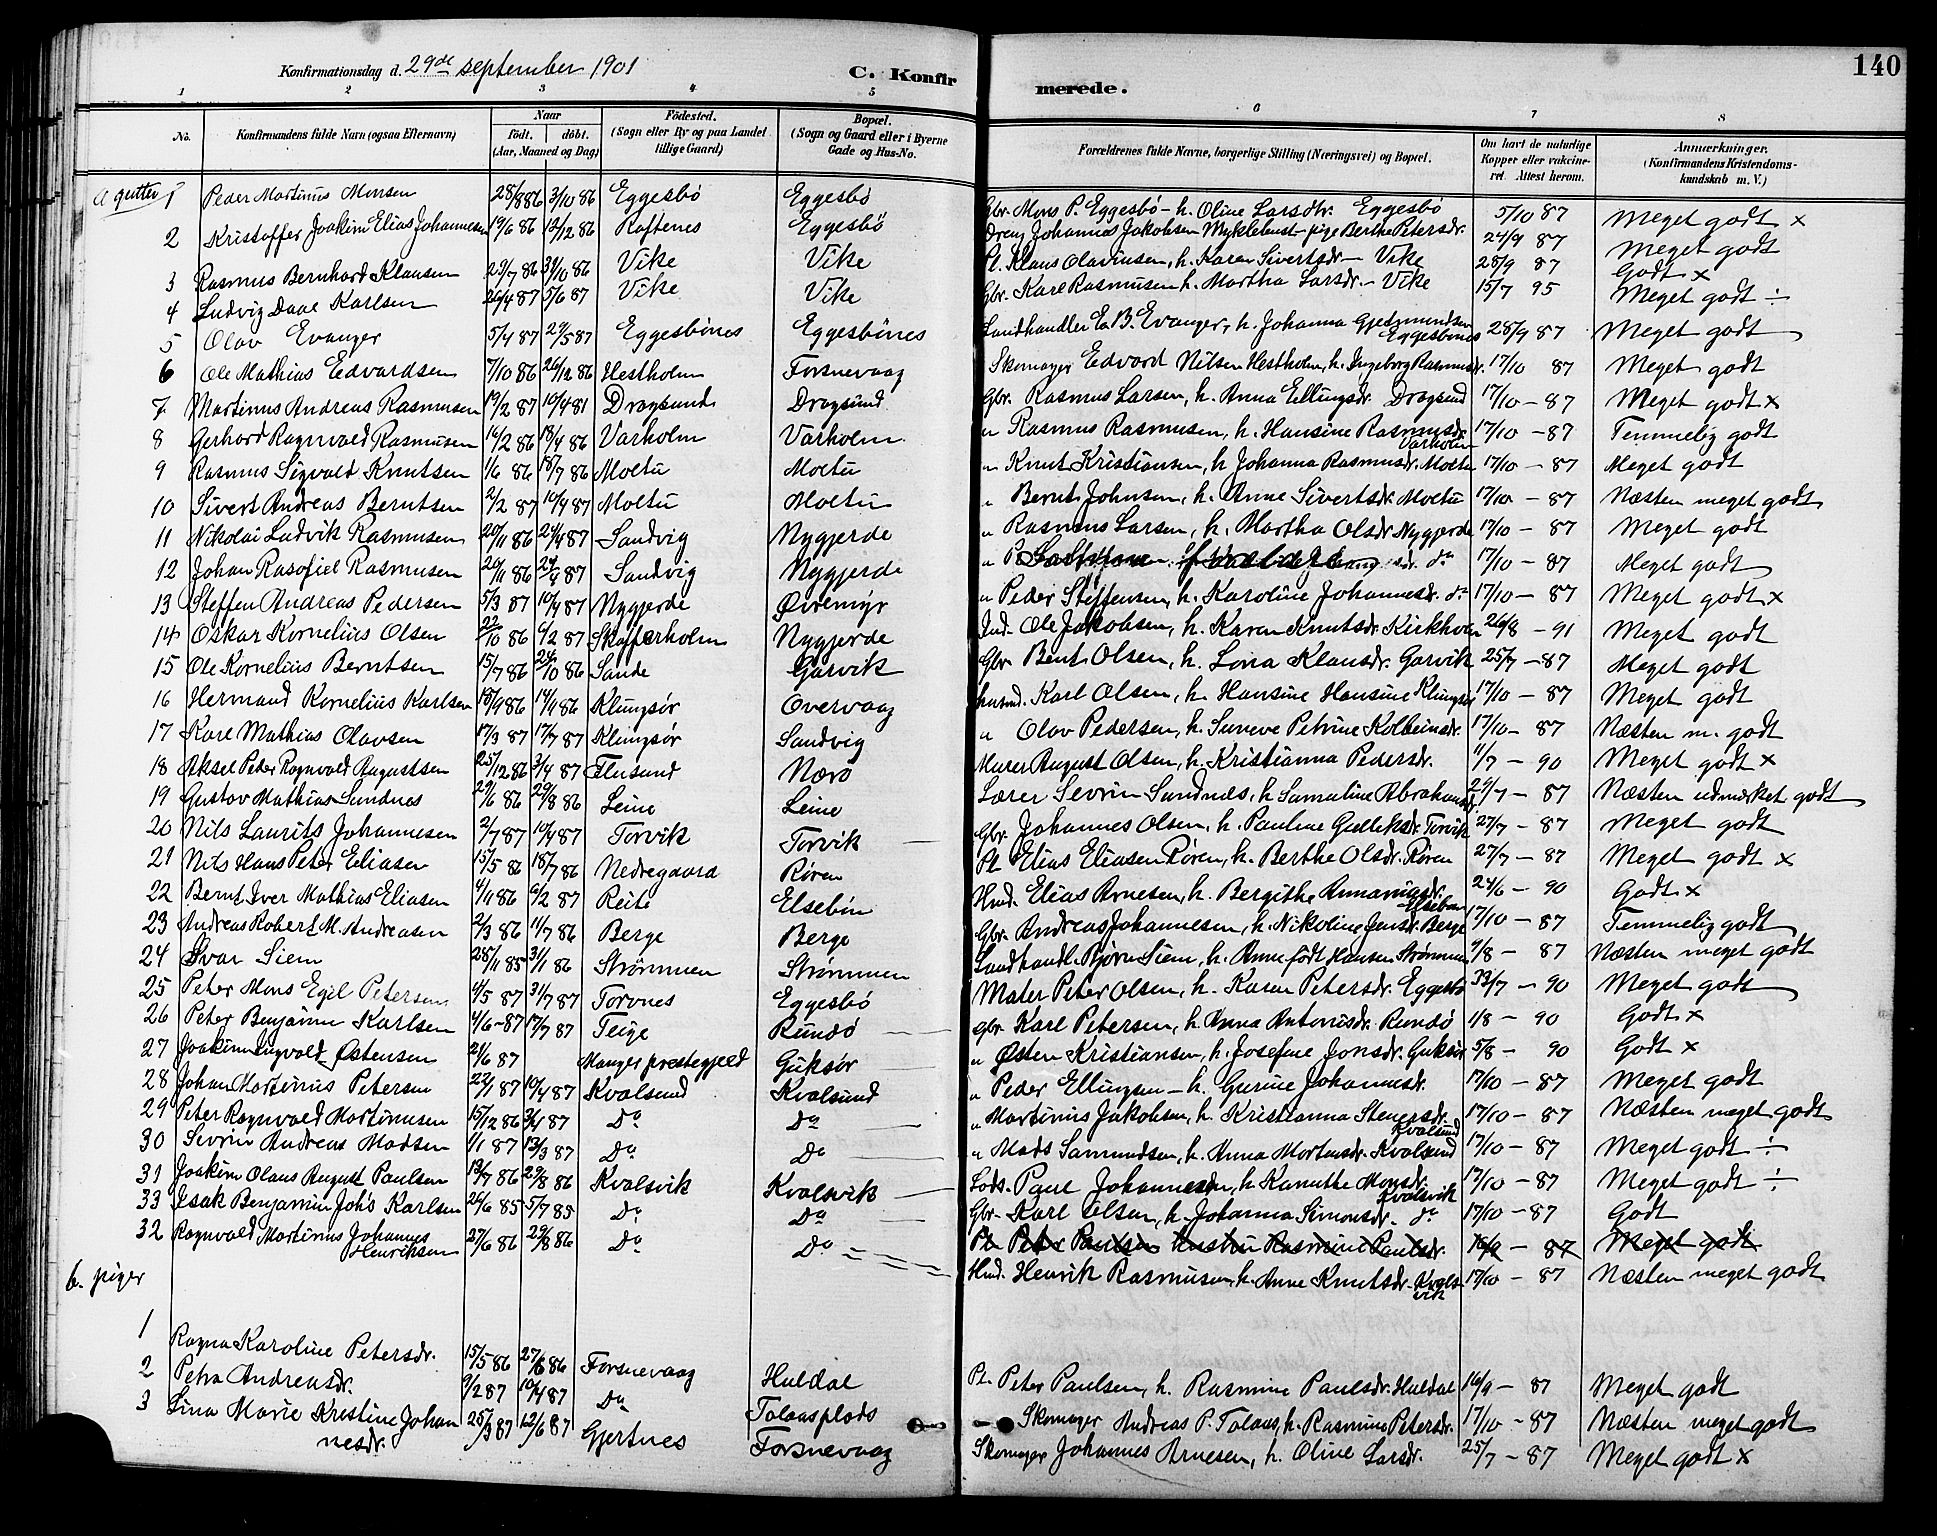 140
Konfirmationsdag d. 29de september 1901 C. Konfirmerede.
1 2 3 4 5 6 7 8
No. Konfirmandens fulde Navn (ogsaa Efternavn) Naar født. døbt. (Aar, Maaned og Dag) Fødested. (Sogn eller By og paa Landet tillige Gaard) Bopæl. (Sogn og Gaard eller i Byerne Gade og Hus-No. Forældrenes fulde Navne, borgerlige Stilling (Næringsvei) og Bopæl. Om havt de naturlige Kopper eller vakcineret. Attest herom. Anmærkninger. (Konfirmandens Kristendomskundskab m. V.)
a gutter
1 Peder Martinus Monsen 28/8 86 3/10 86 Eggesbö Eggesbö Gbr. Mons P. Eggesbö - h. Oline Larsdtr. Eggesbö 5/10 87 Meget godt x
2 Kristoffer Joakim Elias Johannesen 19/6 86 12/12 86 Røftenes Eggesbö Dreng Johannes Jakobsen Myklebust - pige Berthe Petersdr. 24/9 87 Meget godt
3 Rasmus Bernhard Klausen 23/7 86 31/10 86 Vike Vike Pl. Klaus Olavinsen, h. Karen Sivertsdr - Vike 28/9 87 Godt x
4 Ludvig Daae Karlsen 26/4 87 5/6 87 Vike Vike Gbr. Karl Rasmusen h. Martha Larsdr. - Vike 15/7 95 Meget godt ÷
5 Olav Evanger 5/4 87 29/5 87 Eggesbönes Eggesbönes Landhandler E. B. Evanger, h. Johanna Gjedmundsen Eggesbönes 28/9 87 Meget godt
6 Ole Mathias Edvardsen 7/10 86 26/12 86 Hestholm Forsnevaag Skomager Edvard Nilsen Hestholm, h. Ingeborg Rasmusdr. 17/10 87 Meget godt
7 Martinus Andreas Rasmusen 19/2 87 10/4 81 Dragsund Dragsund Gbr. Rasmus Larsen, h. Anna Ellingsdr. Dragsund 17/10 - 87 Meget godt x
8 Gerhard Ragnvald Rasmusen 16/2 86 18/4 86 Varholm Varholm. " Rasmus Rasmusen, h. Hansine Rasmusdr. Varholm 17/10 - 87 Temmelig godt
9 Rasmus Sigvald Knutsen 1/6 86 18/7 86 Moltu Moltu " Knut Kristiansen, h Johanna Rasmusdr. Moltu 17/10 - 87 Meget godt
10 Sivert Andreas Berntsen 2/2 87 10/4 87 Moltu Moltu " Bernt Johnsen, h. Anne Sivertsdr. Moltu 17/10 - 87 Næsten meget godt
11 Nikolai Ludvik Rasmusen 20/11 86 24/4 87 Sandvig Nygjerde " Rasmus Larsen, h. Martha Olsdr Nygjerde 17/10 - 87 Meget godt
12 Johan Rasofiel Rasmusen 20/11 86 24/4 87 Sandvig Nygjerde " do 17/10 - 87 Meget godt
13 Steffen Andreas Pedersen 5/3 87 10/4 87 Nygjerde Øvremyr " Peder Steffensen, h. Karoline Johannesdr. do 17/10 - 87 Meget godt x
14 Oskar Kornelius Olsen 22/10 86 6/2 87 Skafferholm Nygjerde Ind. Ole Jakobsen, h. Karen Knutsdr. Kirkholm 26/8 - 91 Meget godt
15 Ole Kornelius Berntsen 15/7 86 24/10 86 Sande Garvik Gbr Bent Olsen, h. Lona Klausdr. Garvik 25/7 - 87 Meget godt
16 Hermand Kornelius Karlsen 18/9 86 14/9 86 Klungsør Overvaag husmd. Karl Olsen, h. Hansine Hansine Klungsør 17/10 - 87 Meget godt
17 Karl Mathias Olavsen 17/3 87 17/7 87 Klungsør Sandvig " Olav Pedersen, h. Suneve Petrine Kolbeinsdr. 17/10 - 87 Næsten m. godt
18 Aksel Peder Ragnvald Augustsen 25/12 86 3/4 87 Flusund Nærø Murer August Olsen, h. Kristianna Pedersdr. 11/7 - 90 Meget godt x
19 Gustav Mathias Sundnes 29/6 86 29/8 86 Leine Leine Lærer Sevrin Sundnæs, h Samuline Abrahamsd 29/7 - 87 Næsten udmærket godt
20 Nils Laurits Johannesen 2/7 87 10/4 87 Torvik Torvik Gbr. Johannes Olsen, h. Pauline Gulleksdr. Torvik 27/7 - 87 Meget godt
21 Nils Hans Peter Eliasen 15/5 86 18/7 86 Nedregaard Røren Pl Elias Eliasen Røren, h. Berthe Olsdr. Røren 27/7 - 87 Meget godt x
22 Bernt Iver Mathias Eliasen 4/11 86 6/2 87 Reite Elsebøn Hmd. Elias Arnesen, h. Bergithe Annaniasdr. Elsebøn 24/6 - 90 Godt x
23 Andreas Robert M. Andreasen 2/3 86 11/7 86 Berge Berge Gbr. Andreas Johannesen, h. Nikoline Jensdr. Berge 17/10 - 87 Temmelig godt
24 Ivar Siem 28/11 85 31/1 86 Strømmen Strømmen Landhandl. Bjørn Siem, h. Anne født Hansen Strømmen 9/8 - 87 Næsten meget godt
25 Peter Mons Egil Petersen 4/5 87 31/7 87 Torvnes Eggesbö Maler Peter Olsen, h. Karen Petersdr. Eggesbö 33/7 - 90 Meget godt
26 Peter Benjamin Karlsen 4/6 - 87 17/7 87 Teige Rundø gbr Karl Petersen, h. Anna Antonisdr. Rundø 1/8 - 90 Godt x
27 Joakim Ingvald Østensen 21/6 87 Manger prestegjeld Guksør " Østen Kristiansen, h. Josefine Jonsdr. Guksør 5/8 - 90 Godt x
28 Johan Martinus Petersen 22/1 87 10/4 87 Kvalsund Kvalsund " Peder Ellingsen - h. Gurine Johannesdr. 17/10 - 87 Meget godt
29 Peter Ragnvald Martinusen 15/12 86 3/4 87 Do Do " Martinus Jakobsen, h. Kristianna Stenersdr. Kvalsund 17/10 - 87 Næsten meget godt
30 Sevrin Andreas Madsen 1/1 87 13/3 87 Do Do " Mads Samundsen, h. Anna Mortensdr. Kvalsund 17/10 - 87 Meget godt ÷
31 Joakim Olaus August Paulsen 13/7 86 29/8 86 Kvalsvik Kvalsvik Lods. Paul Johannesen, h. Kanuthe Monsdr. Kvalsvik 17/10 - 87 Meget godt ÷
33 Isak Benjamin Johs Karlsen 24/6 85 5/7 85 Do Do Gbr- Karl Olsen, h. Johanna Simonsdr. do 17/10 - 87 Godt
32 Ragnvald Martinus Johannes Henriksen 27/6 86 29/8 86 Do Do Pl. Peter Paulsen hustru Rasmine Paulsdr. 16/9 - 87 Meget godt
Hmd. Henrik Rasmusen, h. Anne Knutsdr. Kvalsvik 17/10 - 87 Næsten meget godt
b. piger
1 Ragna Karoline Petersdr. 15/5 86 27/6 86 Forsnevaag Huldal Pl. Peter Paulsen, h. Rasmine Paulsdr. Huldal 16/9 - 87 Meget godt
2 Petra Andreasdr. 9/2 87 10/4 87 Do Tolaasplads Skomager Andreas P. Tolaas, h. Rasmine Petersdr. 17/10 - 87 Næsten meget godt
3 Lina Marie Kristine Johannesdr. 25/3 87 12/6 87 Gjertnes Forsnevaag Skomager Johannes Arnesen, h. Oline Larsdr. 25/7 - 87 Meget godt x